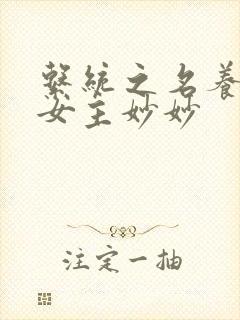 繫統之名養
女主妙妙
注定一抽